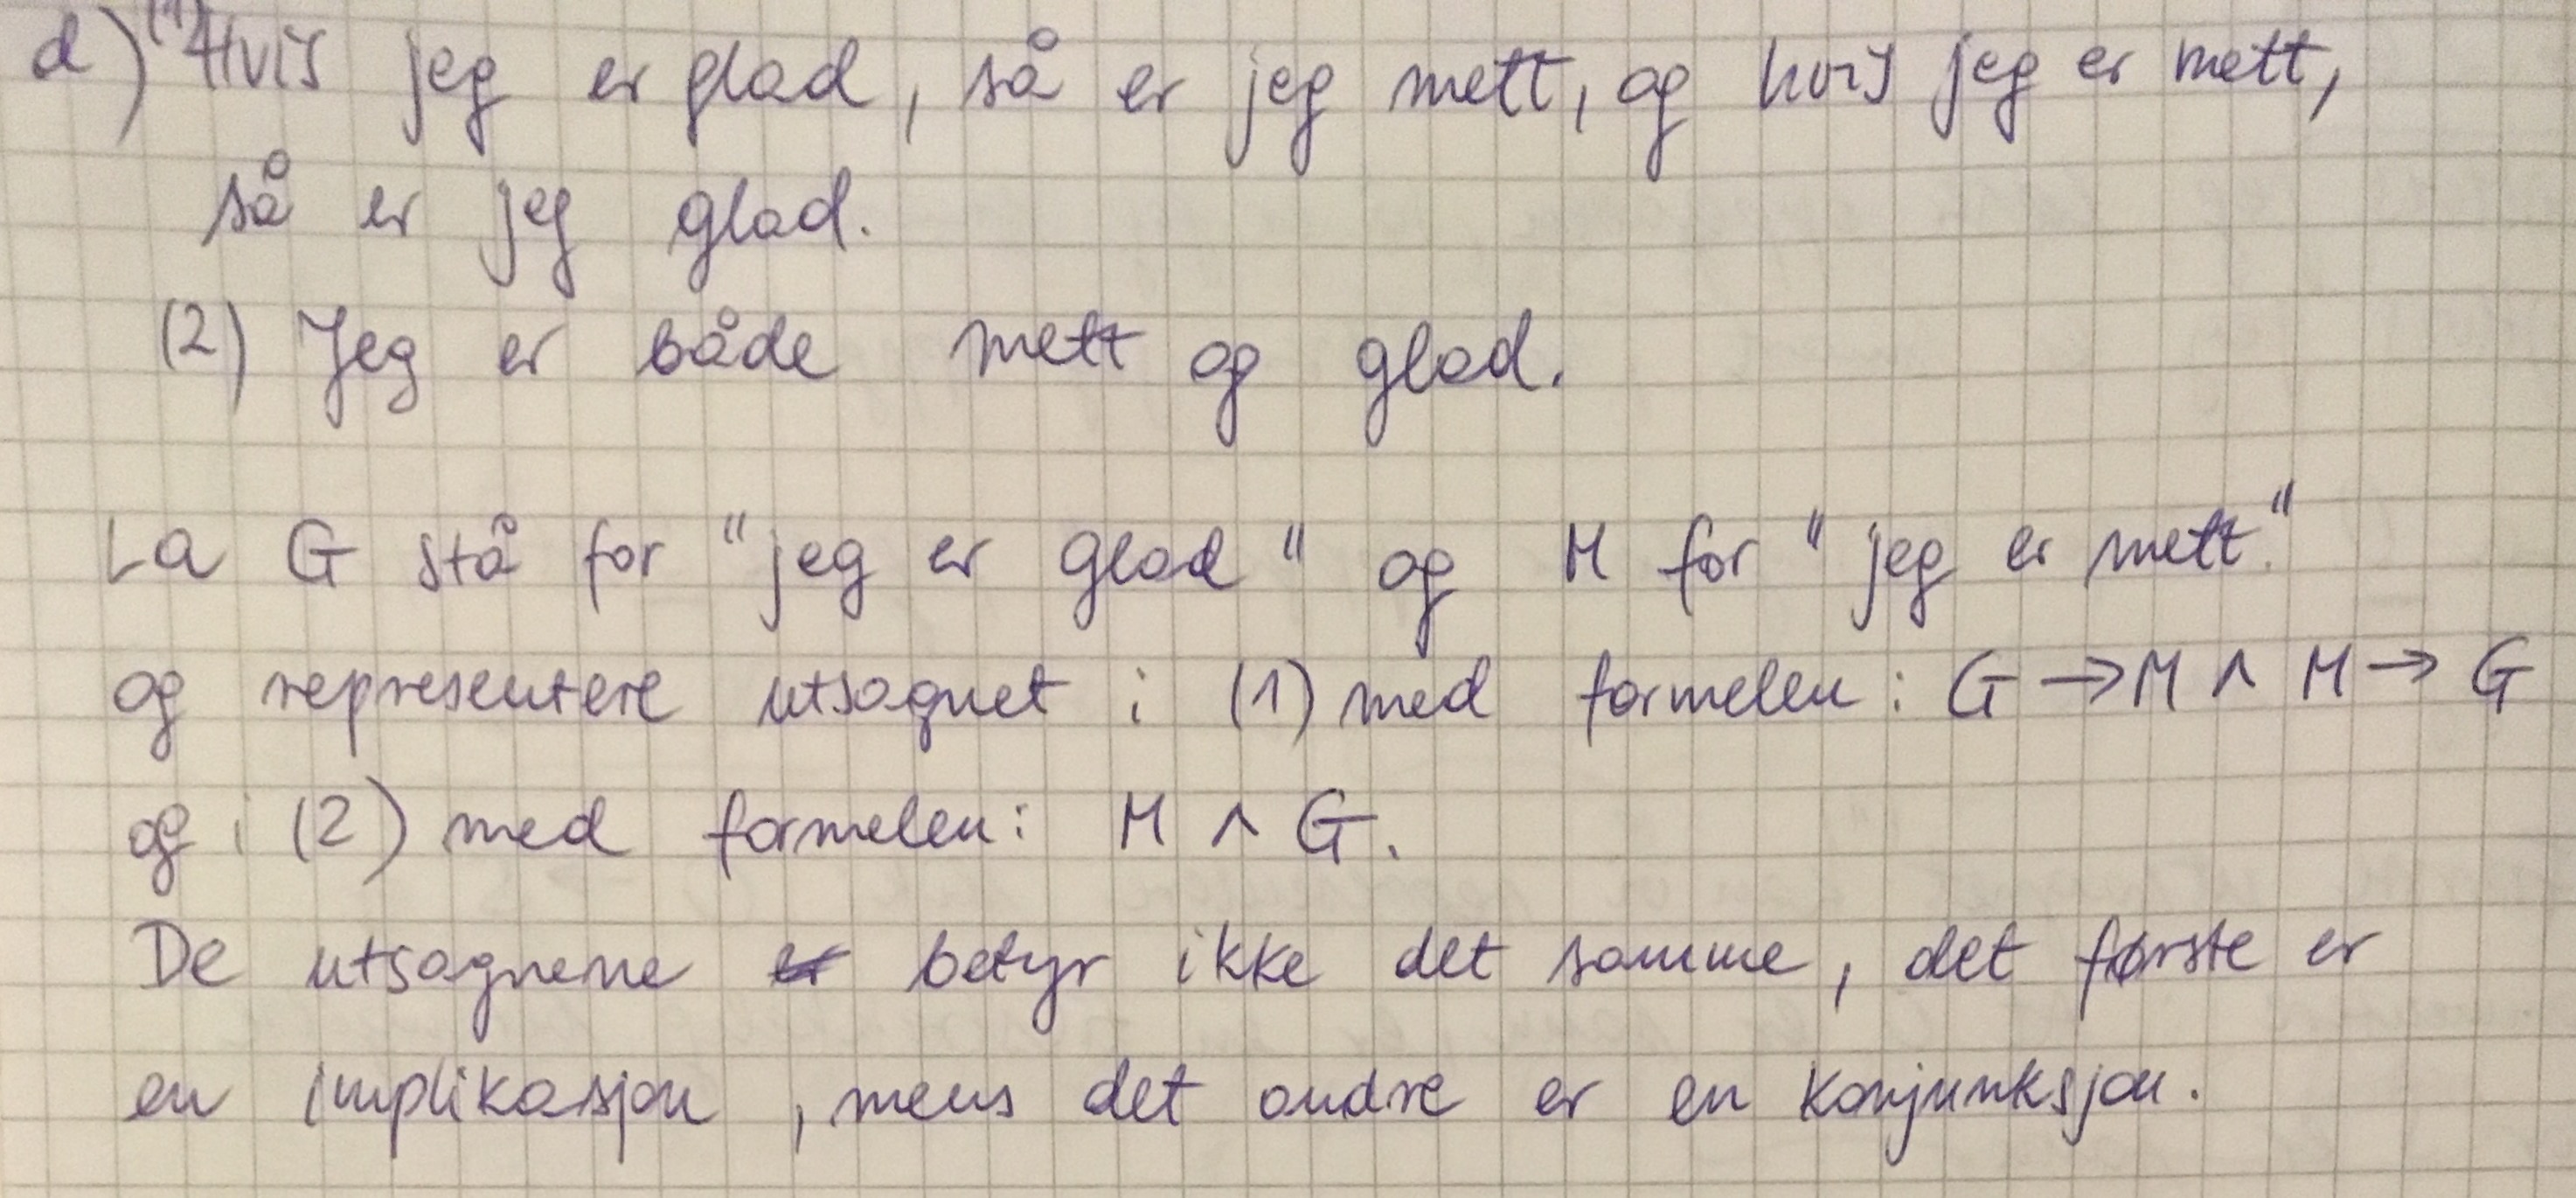 d) (1) Hvis jeg er glad, så er jeg mett, og hvis jeg er mett,
så er jeg glad.
(2) Jeg er både mett og glad.
La G stå for "jeg er glad" og M for "jeg er mett."
og representere utsagnet i (1) med formelen: G → M ∧ M → G
og i (2) med formelen: M ∧ G.
De utsagnene er betyr ikke det samme, det første er
en implikasjon, mens det andre er en konjunksjon.